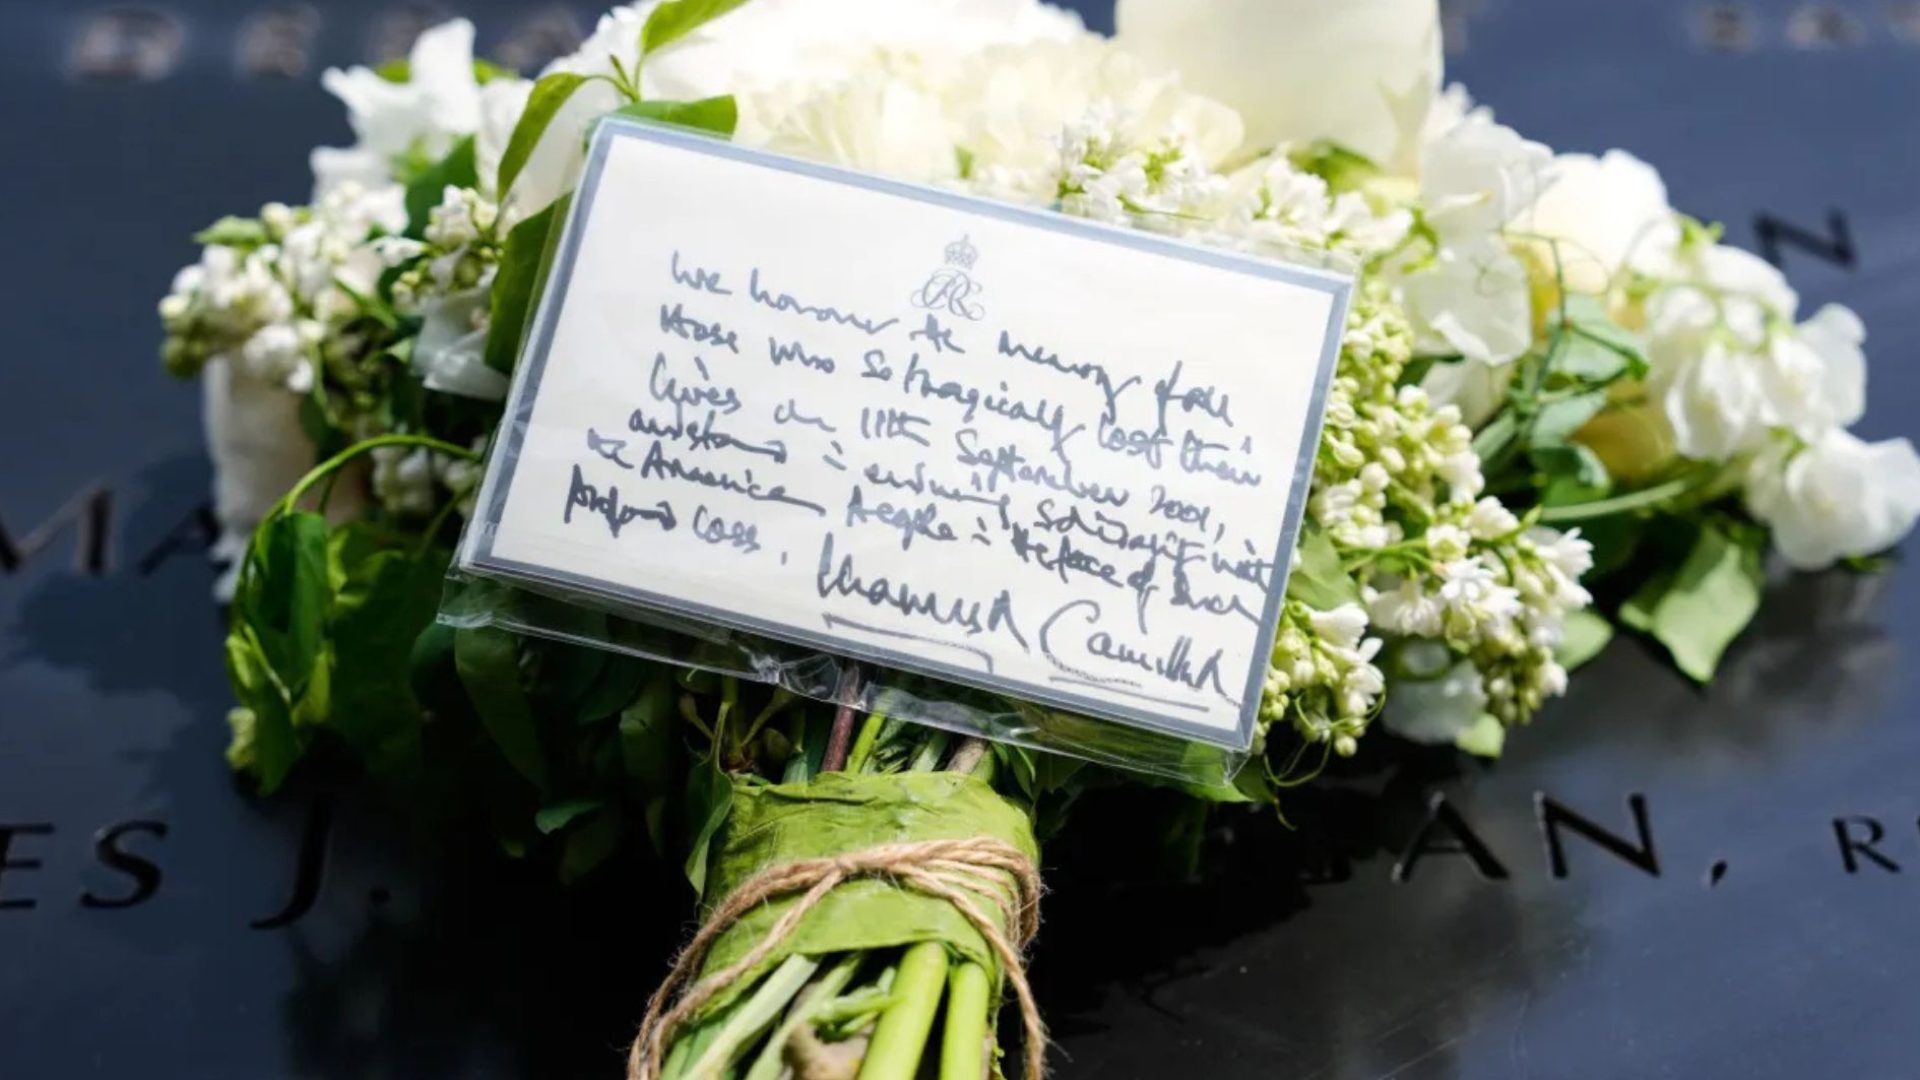 We honour the memory of all
those who so tragically lost their
lives on 11th September 2001,
and stand in enduring solidarity with
the American People in the face of such
profound loss. Charles R Camilla R
N
MA
ES J.
AN, R